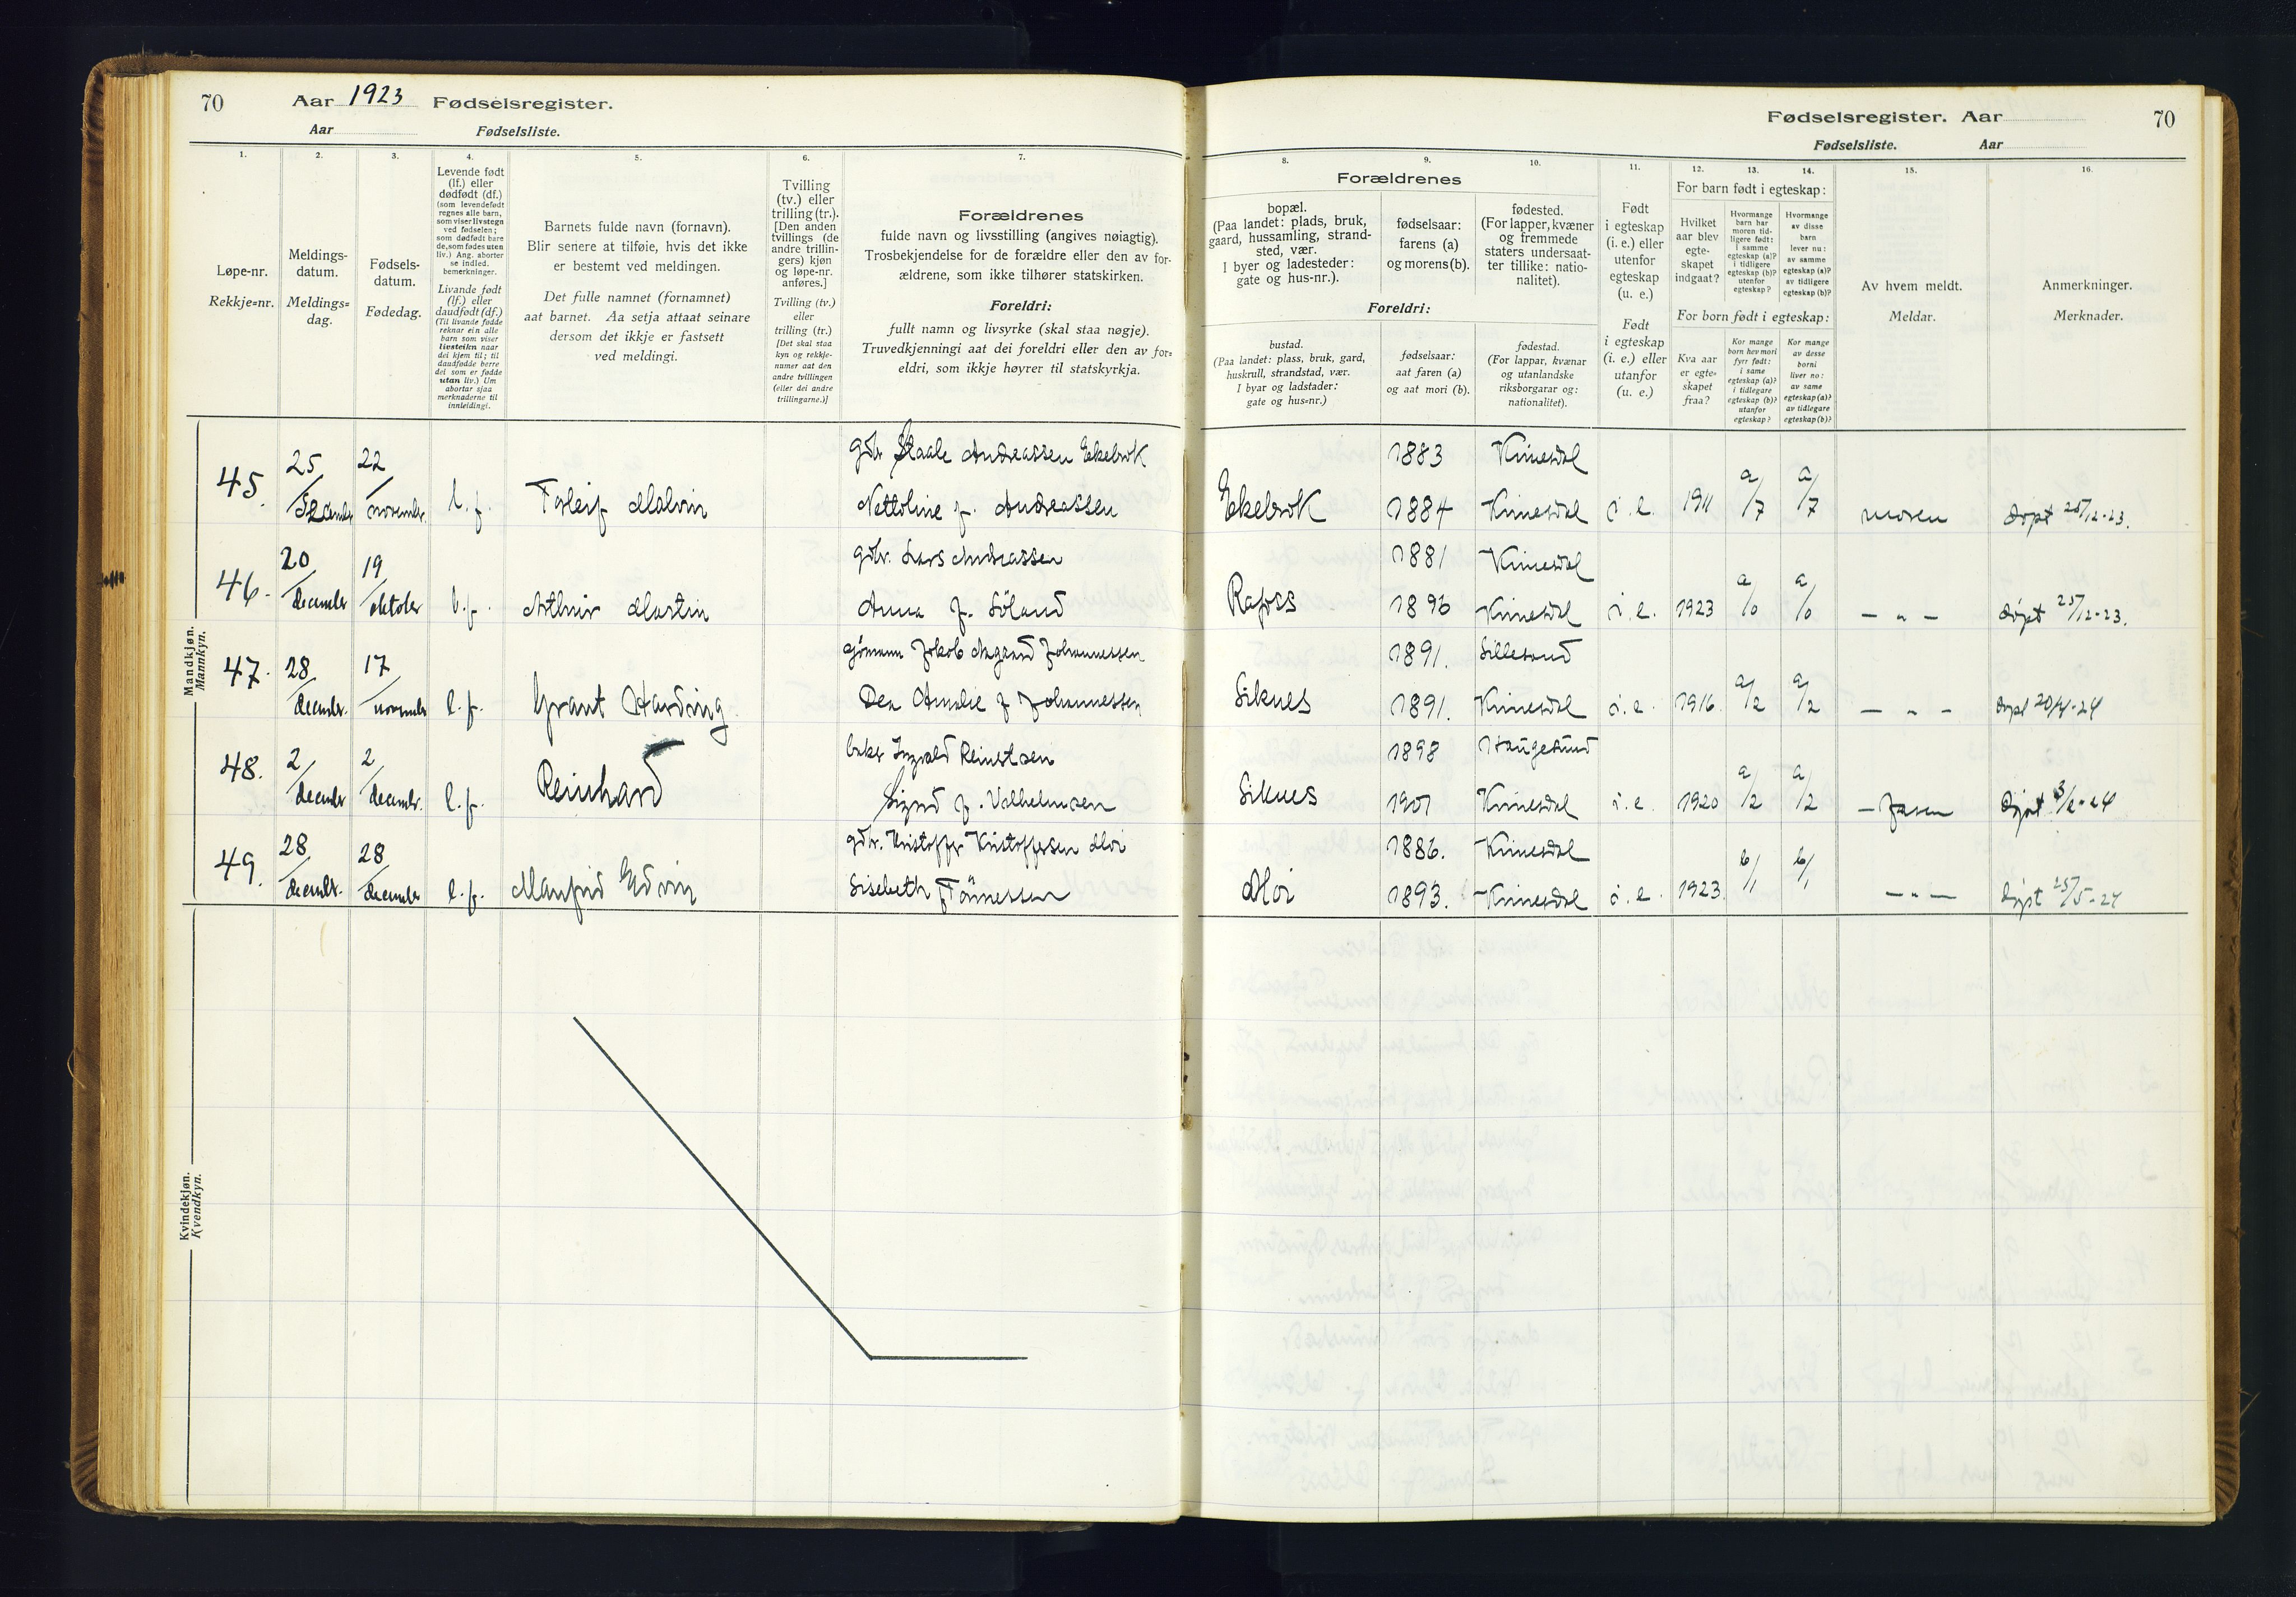 70 Aar 1923 Fødselsregister.
Aar Fødselsliste.
Fødselsregister. Aar 70
Fødselsliste. Aar
1. 2. 3. 4. 5. 6. 7.
Løpe-nr.
Rekkje=nr.
Meldings-
datum.
Meldings=
dag.
Fødsels-
datum.
Fødedag.
Levende født
(lf.) eller
dødfødt (df.)
(som levendefødt
regnes alle barn,
som viser livstegn
ved fødselen;
som dødfødt bare
de, som fødes uten
liv.) Ang. aborter
se indled.
bemerkninger.
Livande født
(lf.) eller
daudfødt (df.)
(Til livande fødde
reknar ein alle
barn som viser
livsteikn naar
dei kjem til; til
daudfødde berre
dei som er fødde
utan liv.) Um
abortar sjaa
merknaderne til
innleidingi.
Barnets fulde navn (fornavn).
Blir senere at tilføie, hvis det ikke
er bestemt ved meldingen.
Det fulle namnet (fornamnet)
aat barnet. Aa setja attaat seinare
dersom det ikkje er fastsett
ved meldingi.
Tvilling
(tv.) eller
trilling (tr.).
[Den anden
tvillings (de
andre trillin-
gers) kjøn
og løpe-nr.
anføres.]
Tvilling (tv.)
eller
trilling (tr.)
[Det skal staa
kyn og rekkje-
numer aat den
andre tvillingen
(eller dei andre
trillingarne.)]
Forældrenes
fulde navn og livsstilling (angives nøiagtig).
Trosbekjendelse for de forældre eller den av for-
ældrene, som ikke tilhører statskirken.
Foreldri:
fullt namn og livsyrke (skal staa nøgje).
Truvedkjenningi aat dei foreldri eller den av for=
eldri, som ikkje høyrer til statskyrkja.
8. 9. 10. 11. 12. 13. 14. 15. 16.
Forældrenes
bopæl.
(Paa landet: plads, bruk,
gaard, hussamling, strand-
sted, vær.
I byer og ladesteder:
gate og hus-nr.).
fødselsaar:
farens (a)
og morens (b).
fødested.
(For lapper, kvæner
og fremmede
staters undersaat-
ter tillike: natio-
nalitet).
Foreldri:
bustad.
(Paa landet: plass, bruk, gard,
huskrull, strandstad, vær.
I byar og ladstader:
gate og hus=nr.)
fødselsaar:
aat faren (a)
og aat mori (b).
fødestad.
(For lappar, kvænar
og utanlandske
riksborgarar og:
nationalitet).
Født
i egteskap
(i. e.) eller
utenfor
egteskap
(u. e.)
Født
i egteskap
(i. e.) eller
utanfor
(u. e.)
For barn født i egteskap:
Hvilket
aar blev
egte-
skapet
indgaat?
Hvormange
barn har
moren tid-
ligere født:
i samme
egteskap (a)?
i tidligere
egteskap (b)?
utenfor
egteskap?
Hvormange
av disse
barn
lever nu:
av samme
egteskap (a)?
av tidligere
egteskap (b)?
For born født i egteskap:
Kva aar
er egte-
skapet
fraa?
Kor mange
born hev mori
fyrr født:
i same
egteskap (a)?
i tidlegare
egteskap (b)?
utanfor
egteskap?
Kor mange
av desse
borni
liver no:
av same
egteskap (a)?
av tidlegare
egteskap (b)?
Av hvem meldt.
Meldar.
Anmerkninger.
Merknader.
Mandkjøn.
Mannkyn.
45. 25/december 22/november l.f. Torleif Malvin
gdbr Staale Andreassen Ekebrok 1883 Kvinesdal
Nettoline f. Andreassen Ekebrok 1884 Kvinesdal i. e. 1911 a/7 a/7 moren døpt 26/12-23.
46. 20/december 19/oktober l.f. Arthur Martin
gdbr. Lars Andreassen 1881 Kvinesdal
Anna f. Røjland 1896 Kvinesdal i. e. 1923 a/0 a/0 – " – døpt 25/12-23.
47. 28/december. 17/november l.f. Grant Harding
sjømann Jakob Aagaard Johannessen 1891. Lillesand
Dea Amalie f Johannessen Liknes 1891. Kvinesdal i. e. 1916. a/2 a/2 – " –
48. 2/december 2/december. l.f. Reinhard
baker Ingvald Reinertsen 1898 Haugesund
Signe f. Vilhelmsen Liknes 1901 Kvinesdal i. e. 1920 a/2 a/2 døpt 3/2-24
49. 28/december. 28/december l.f. Manfred Edvin
gdbr. Kristoffer Kristoffersen Moi 1886. Kvinesdal
Lisebeth f Tønnessen Moi 1893. Kvinesdal i. e. 1923. b/1 b/1 – " – døpt 25/5-24
Kvindekjøn.
Kvendkyn.